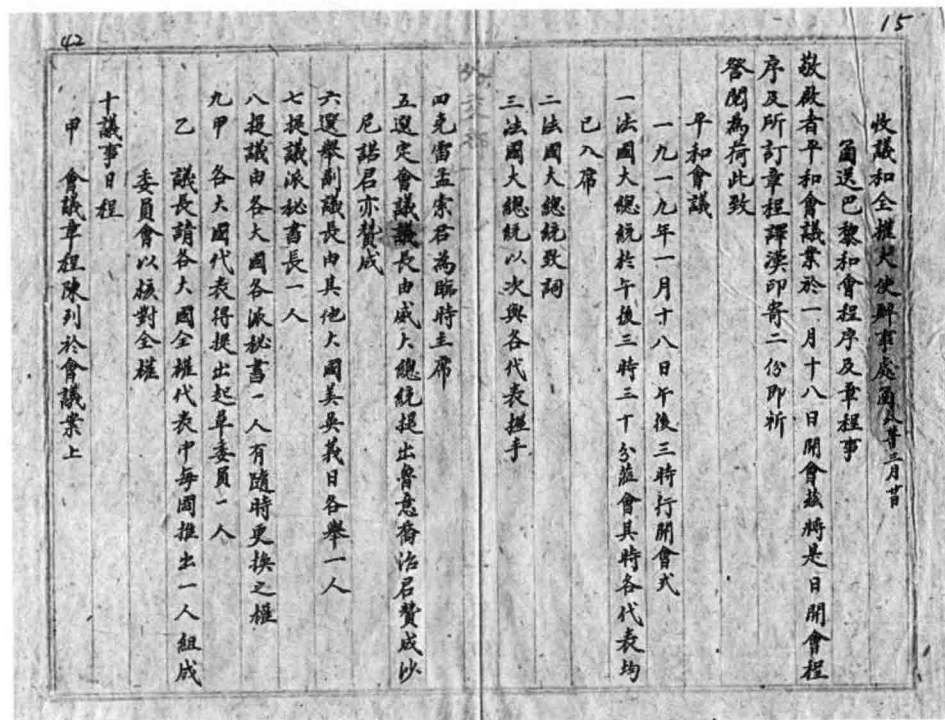 15
收議和全權大使辦事處函八年三月廿
函送巴黎和會程序及章程事
敬啟者平和會議業於一月十八日開會茲將是日開會程
序及所訂章程譯漢印寄二份即祈
詧閱為荷此致
平和會議
一九一九年一月十八日午後三時行開會式
一法國大總統於午後三時三十分蒞會其時各代表均
已入席
二法國大總統致詞
三法國大總統以次與各代表握手
四克雷孟索君為臨時主席
五選定會議議長由威大總統提出魯意喬治君贊成沙
尼諾君亦贊成
六選舉副議長由其他大國美英義日各舉一人
七提議派秘書長一人
八提議由各大國各派秘書一人有隨時更換之權
九甲 各大國代表得提出起草委員一人
乙 議長請各大國全權代表中每國推出一人組成
委員會以核對全權
十議事日程
甲 會議章程陳列於會議業上
42